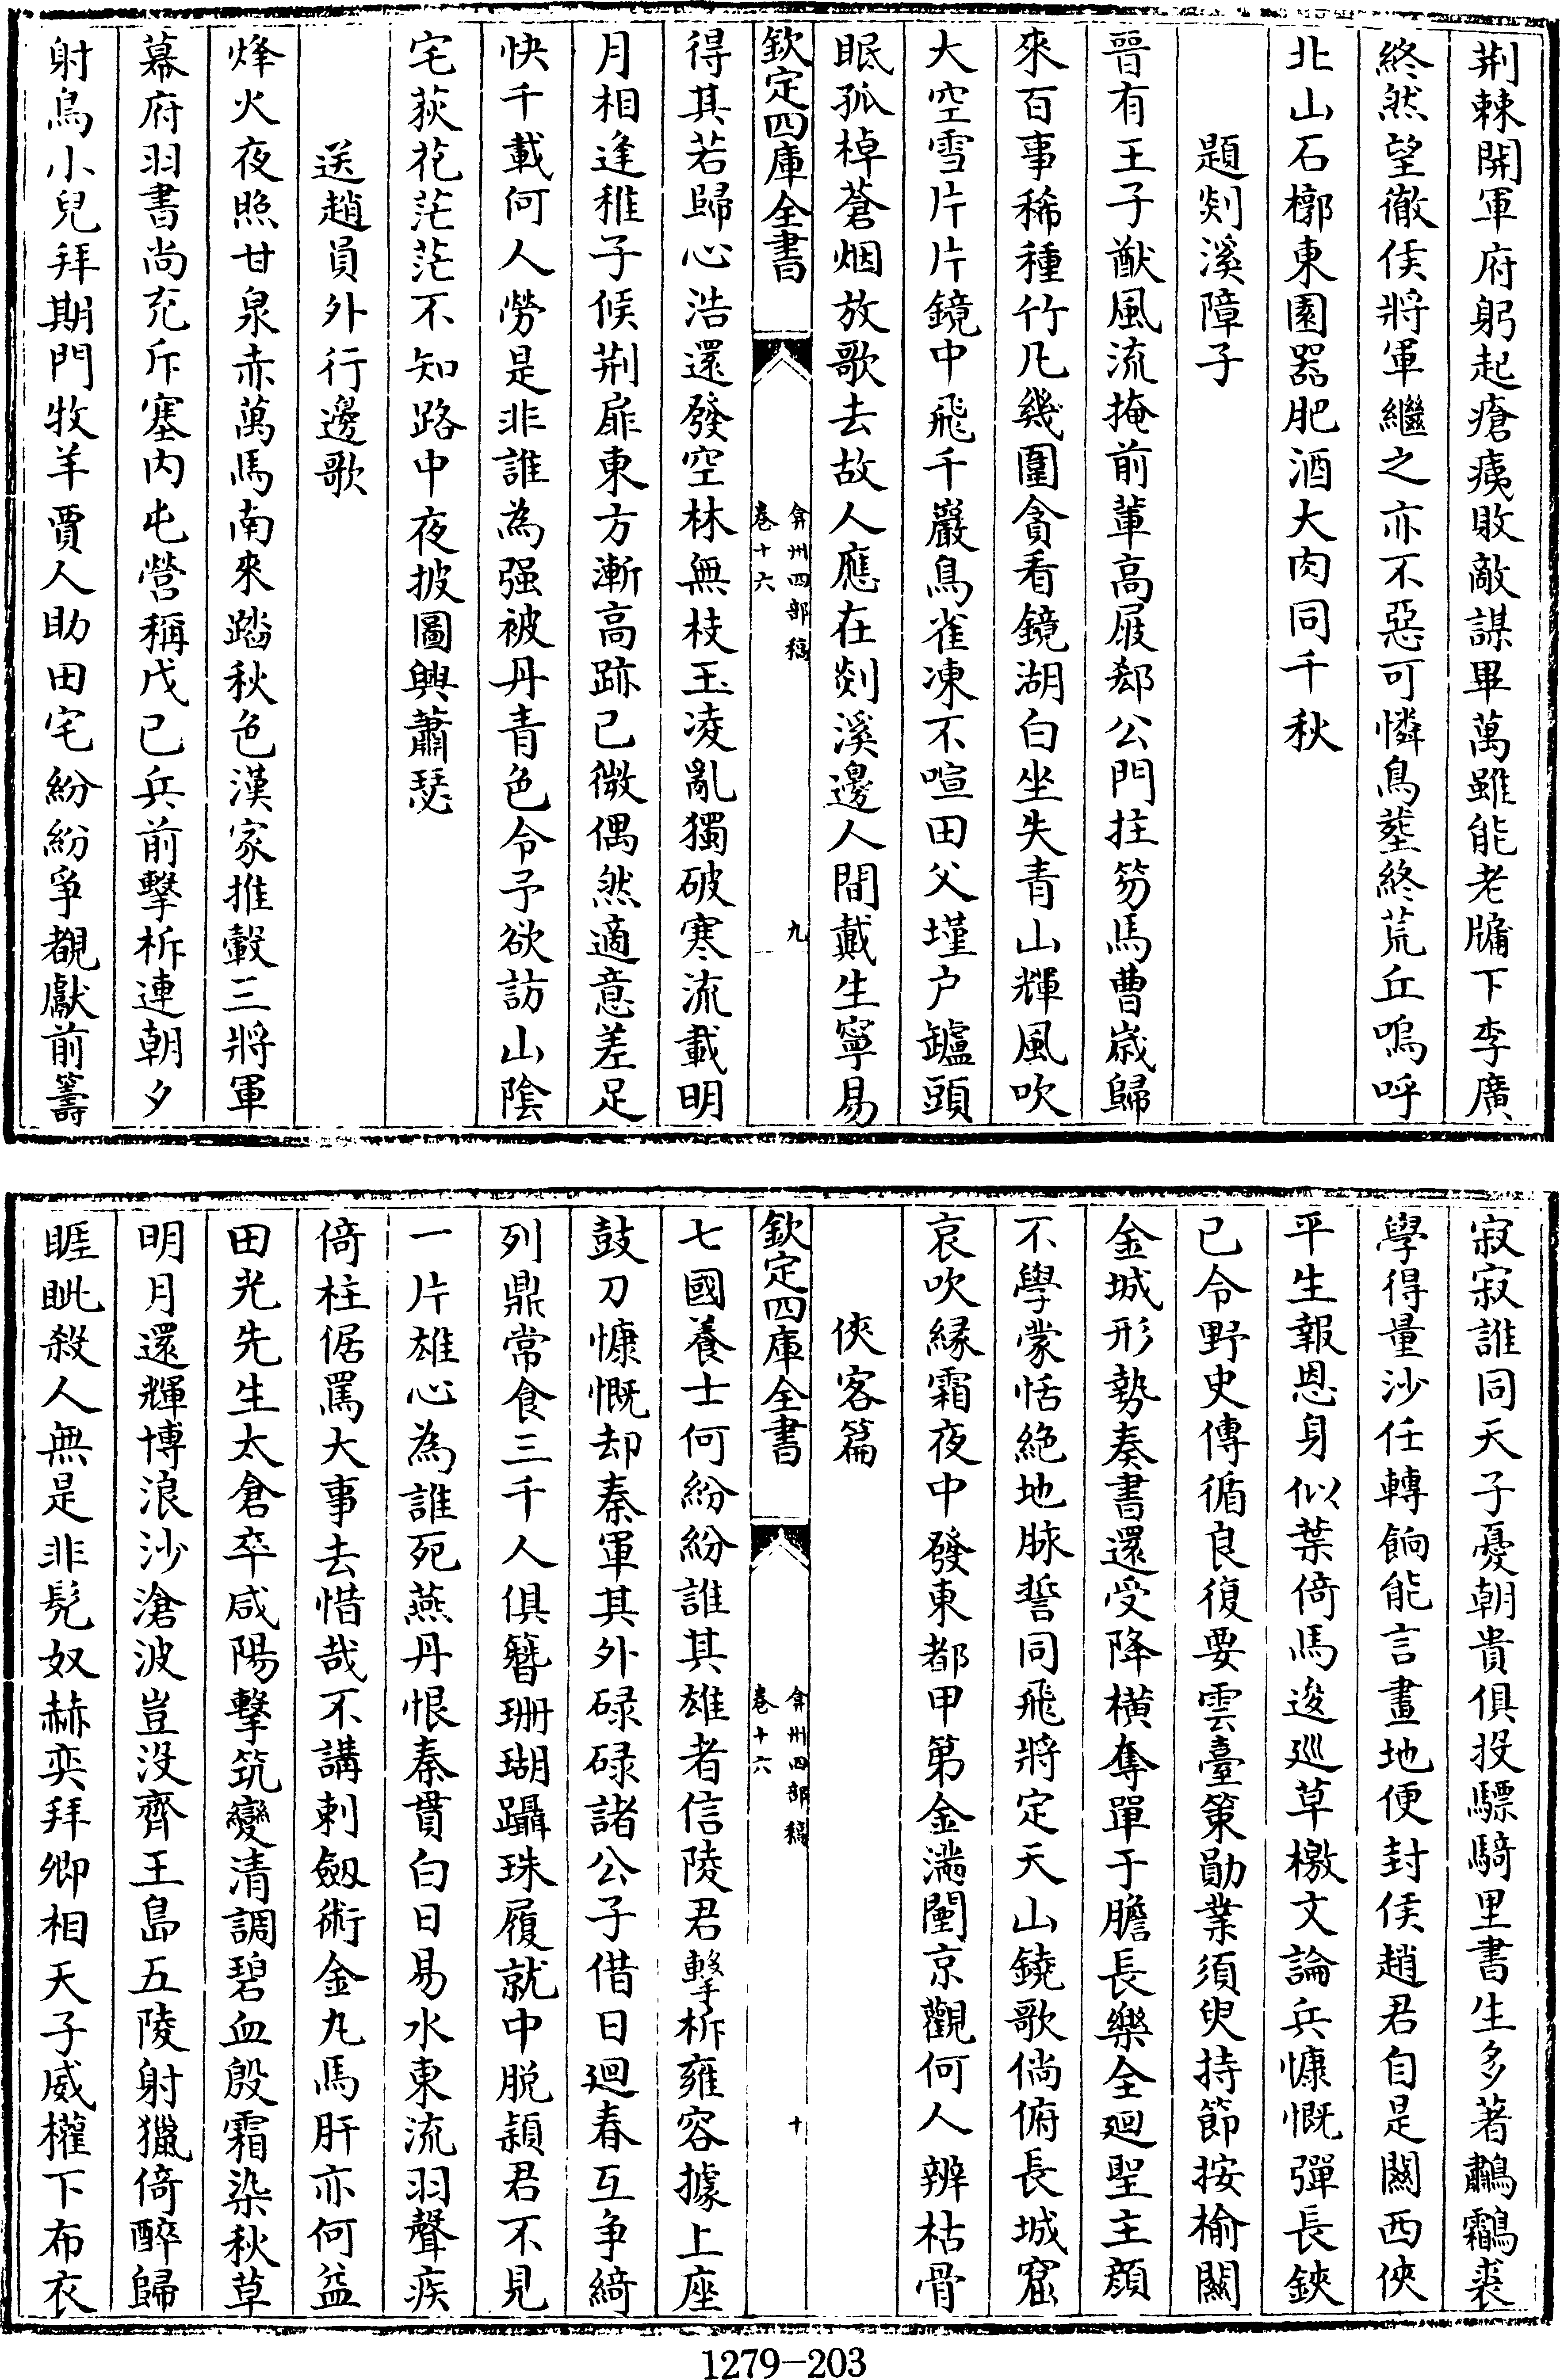 荆棘開軍府躬起瘡痍敗敵謀畢萬雖能老牖下李廣
終然望徹侯將軍繼之亦不惡可憐鳥塟終荒丘嗚呼
北山石槨東園器肥酒大肉同千秋
題剡溪障子
晉有王子猷風流掩前輩高屐郄公門拄笏馬曹歲歸
來百事稀種竹凡幾圍貪看鏡湖白坐失青山輝風吹
大空雪片片鏡中飛千巖鳥雀凍不喧田父墐户罏頭
眠孤棹蒼烟放歌去故人應在剡溪邊人間戴生寧易
欽定四庫全書
弇州四部稿
卷十六
九
得其若歸心浩還發空林無枝玉凌亂獨破寒流載明
月相逢稚子候荆扉東方漸高跡已微偶然適意差足
快千載何人勞是非誰為强被丹青色令予欲訪山陰
宅荻花茫茫不知路中夜披圖興蕭瑟
送趙員外行邊歌
烽火夜照甘泉赤萬馬南來踏秋色漢家推轂三將軍
幕府羽書尚充斥塞内屯營稱戊己兵前擊柝連朝夕
射鳥小兒拜期門牧羊賈人助田宅紛紛争覩獻前籌
寂寂誰同天子憂朝貴俱投驃騎里書生多著鷫鸘裘
學得量沙任轉餉能言畫地便封侯趙君自是闗西俠
平生報恩身似葉倚馬逡巡草檄文論兵慷慨彈長鋏
已令野史傳循良復要雲臺策勛業須臾持節按榆闗
金城形勢奏書還受降横奪單于膽長樂全迴聖主顔
不學蒙恬絶地脉誓同飛將定天山鐃歌倘俯長城窟
哀吹緣霜夜中發東都甲第金滿闉京觀何人辨枯骨
俠客篇
欽定四庫全書
弇州四部稿
卷十六
十
七國養士何紛紛誰其雄者信陵君擊柝雍容據上座
鼓刀慷慨却秦軍其外碌碌諸公子借日迴春互争綺
列鼎常食三千人俱簪珊瑚躡珠履就中脱頴君不見
一片雄心為誰死燕丹恨秦貫白日易水東流羽聲疾
倚柱倨罵大事去惜哉不講刺劔術金丸馬肝亦何益
田光先生太倉卒咸陽擊筑變清調碧血殷霜染秋草
明月還輝博浪沙滄波豈没齊王島五陵射獵倚醉歸
睚眦殺人無是非髠奴赫奕拜卿相天子威權下布衣
1279-203